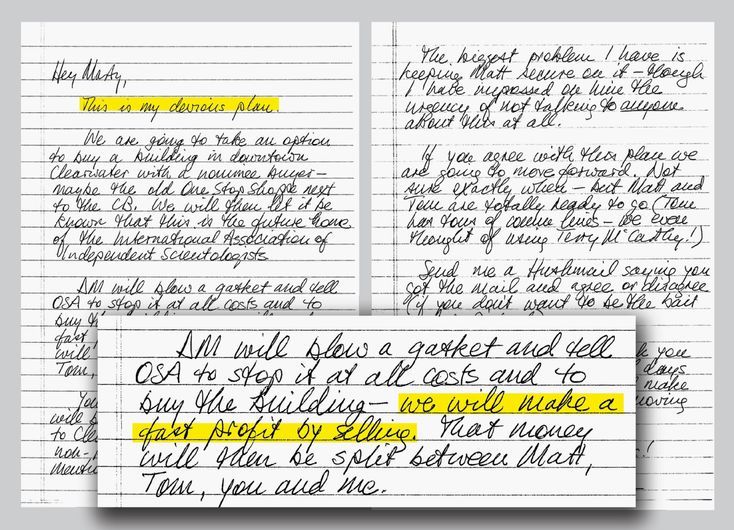 Hey Marty,
This is my devious plan.
We are going to take an option
to buy a building in downtown
Clearwater with a nominee buyer—
maybe the old One Stop Shoppe next
to the CB. We will then let it be
known that this is the future home
of the International Association of
Independent Scientologists
DM will blow a gasket and tell
OSA to stop it at all costs and to
buy the
fast
will
Tom,
You
will
to Cle
non-
menti
The biggest problem I have is
keeping Matt secure on it — though
I have impressed on him the
urgency of not talking to anyone
about this at all.
If you agree with this plan we
are going to move forward. Not
sure exactly when — but Matt and
Tom are totally ready to go (Tom
has tons of lines — we even
thought of using Terry McCarthy!)
Send me a Hushmail saying you
got the mail and agree or disagree
(if you don't want to be the bait
you
days
make
moving
!
DM will blow a gasket and tell
OSA to stop it at all costs and to
buy the building — we will make a
fast profit by selling. That money
will then be split between Matt,
Tom, you and me.